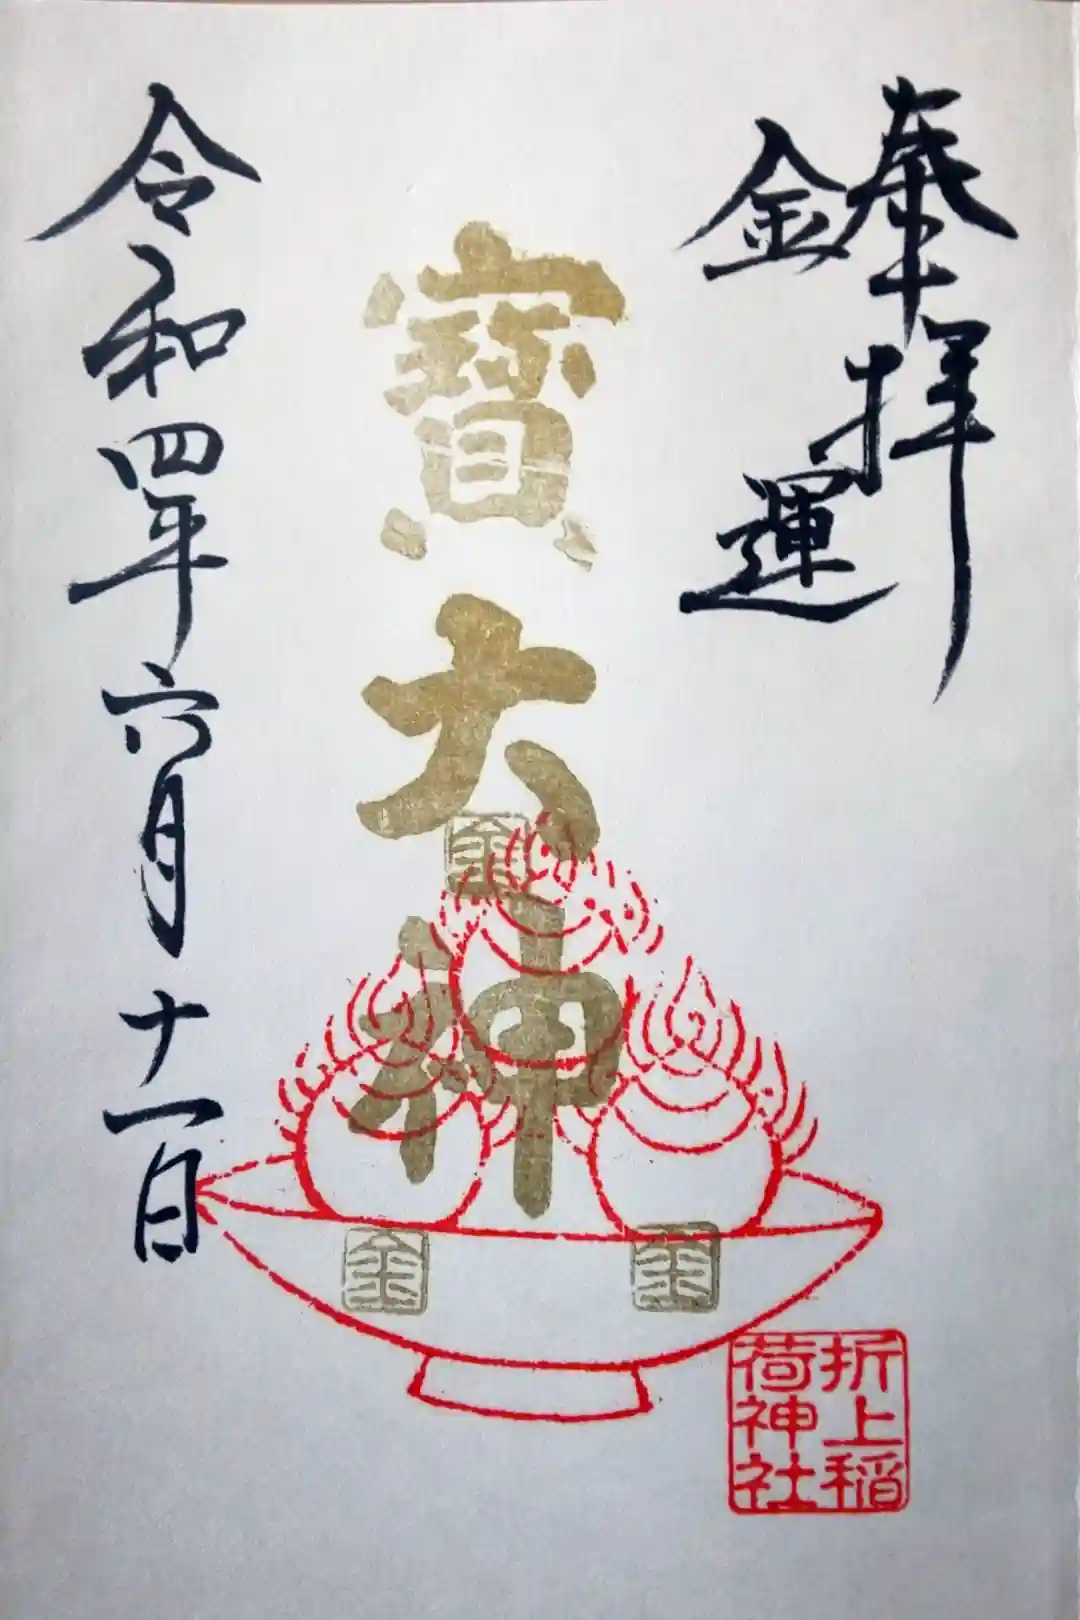 奉拝
金運
寶大神
金
金
金
折上稲
荷神社
令和四年六月十一日